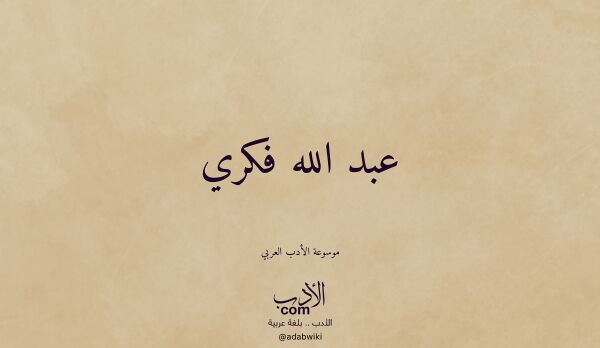 عبد الله فكري
موسوعة الأدب العربي
الأدب
com
الأدب .. بلغة عربية
@adabwiki